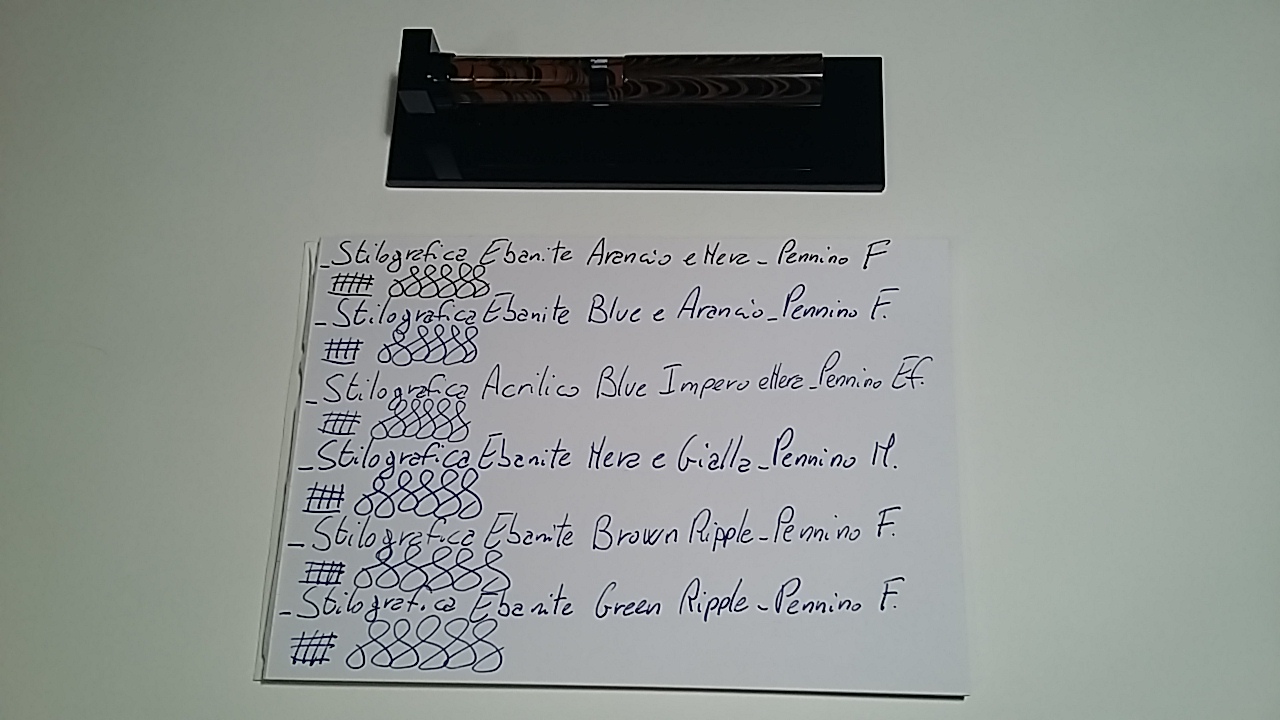 _Stilografica Ebanite Arancio e Nera_Pennino F
_Stilografica Ebanite Blue e Arancio_Pennino F.
_Stilografica Acrilico Blue Impero e Nera_Pennino Ef.
_Stilografica Ebanite Nera e Gialla_Pennino M.
_Stilografica Ebanite Brown Ripple_Pennino F.
_Stilografica Ebanite Green Ripple_Pennino F.